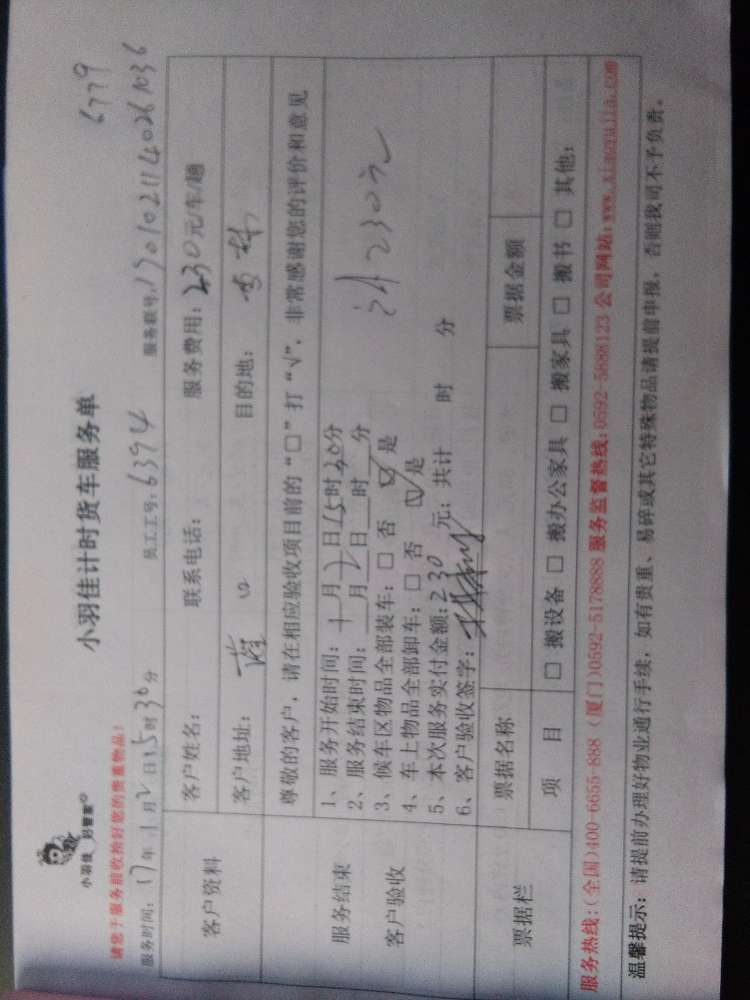 小羽佳 好管家
小羽佳计时货车服务单
6779
请您于服务前收拾好您的贵重物品！
服务时间：17年1月2日15时30分 员工工号：6394 服务联号：1701021140261036
客户资料
客户姓名： 联系电话： 服务费用：230元/车/趟
客户地址： 目的地：
尊敬的客户，请在相应验收项目前的“□”打“√”，非常感谢您的评价和意见
服务结束
客户验收
1、服务开始时间：1月2日15时20分
2、服务结束时间：月2日时分
3、候车区物品全部装车：□ 否 ☑ 是
4、车上物品全部卸车：□ 否 ☑ 是
5、本次服务实付金额：230元；共计 时 分
6、客户验收签字：
230元
票据栏
票据名称 票据金额
项 目 □ 搬设备 □ 搬办公家具 □ 搬家具 □ 搬书 □ 其他：
服务热线：(全国)400-6655-888 (厦门)0592-5178888 服务监督热线：0592-5888123 公司网站：www.xiaoyujia.com
温馨提示：请提前办理好物业通行手续，如有贵重、易碎或其它特殊物品请提前申报，否则我司不予负责。